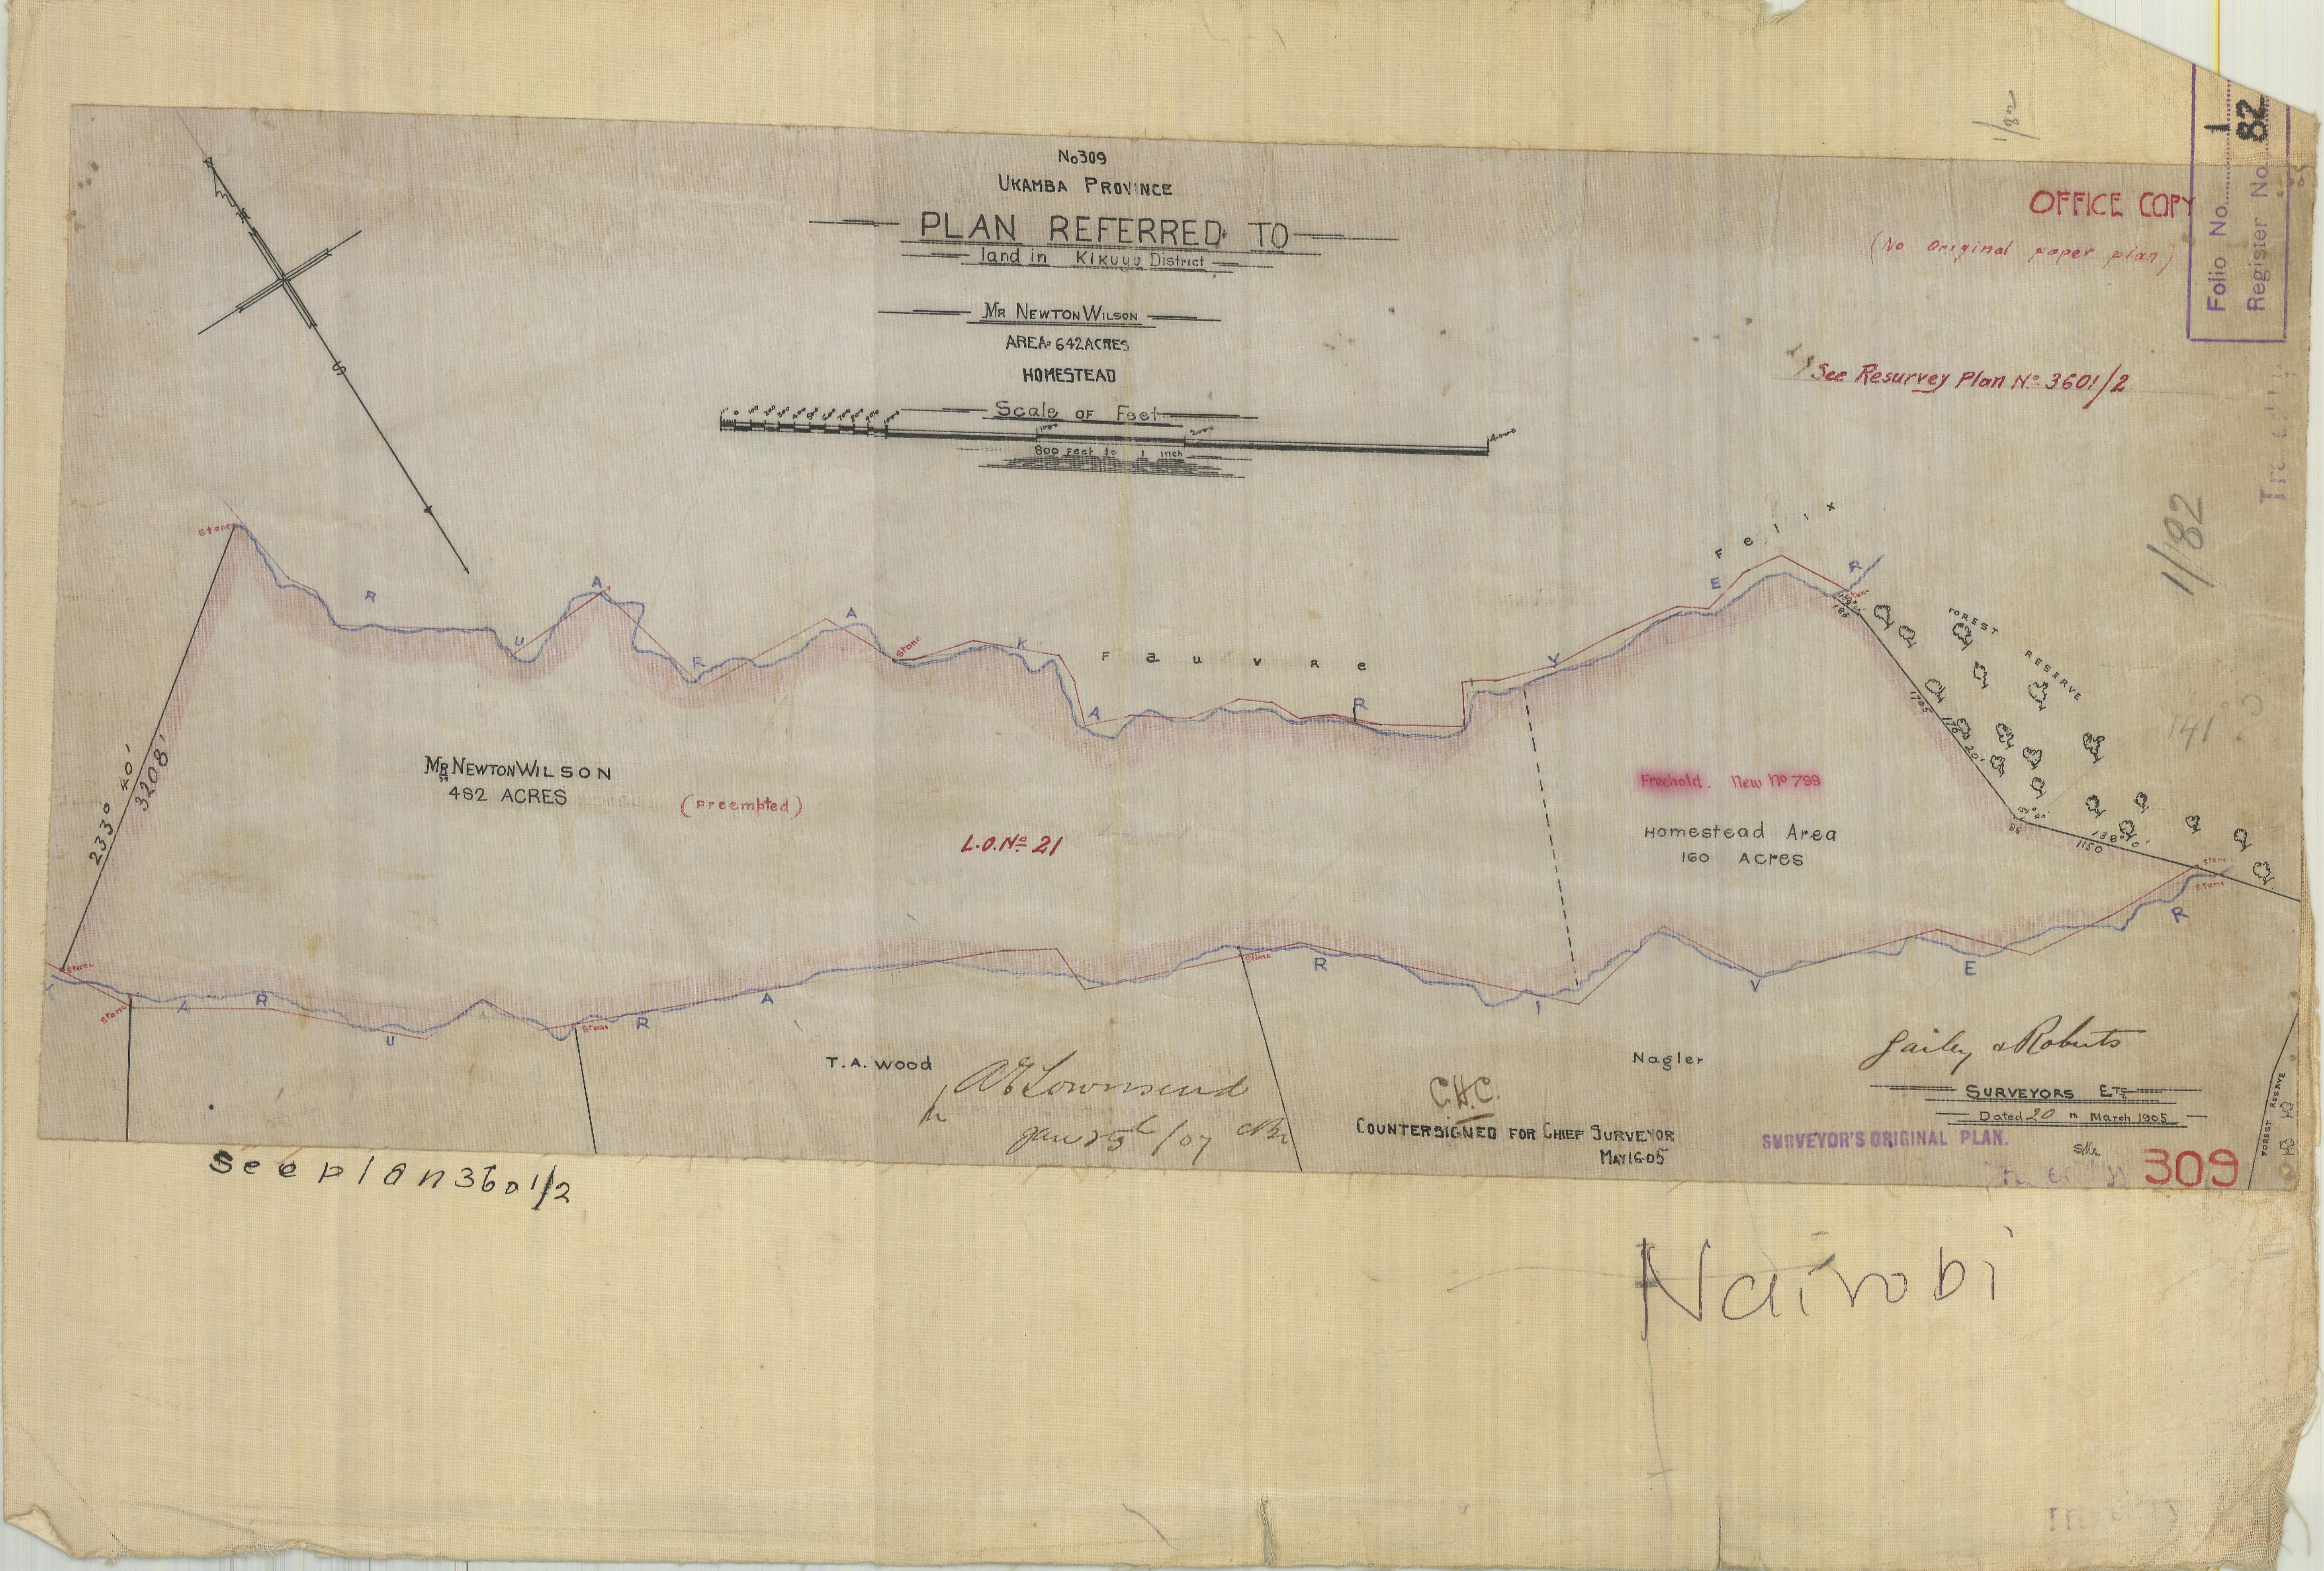 No 309
UKAMBA PROVINCE
PLAN REFERRED TO
land in KIKUYU District
MR NEWTON WILSON
AREA= 642 ACRES
HOMESTEAD
Scale OF Feet
1000 2000 4000
800 Feet to 1 inch
OFFICE COPY
(No Original paper plan)
Folio No. 1
Register No. 82
1/82
See Resurvey Plan No 3601/2
1/82
N
S
Stone
R U A R A K A R I V E R
Stone
Felix
Fauvre
Stone
186
FOREST RESERVE
1705
178° 20'
141° 0
138° 10'
1150
Stone
Stone
233° 40'
3208'
MR NEWTON WILSON
482 ACRES
(preempted)
L.O. No 21
Freehold. New No 799
Homestead Area
160 Acres
Stone
Stone
Stone
Stone
A R U A R A R I V E R
T.A. Wood
Nagler
A E Townsend
Jan 25th/07
C.H.C.
COUNTERSIGNED FOR CHIEF SURVEYOR
MAY 16 05
Gailey & Roberts
SURVEYORS ETC
Dated 20th March 1905
SURVEYOR'S ORIGINAL PLAN.
309
FOREST RESERVE
See plan 3601/2
Nairobi